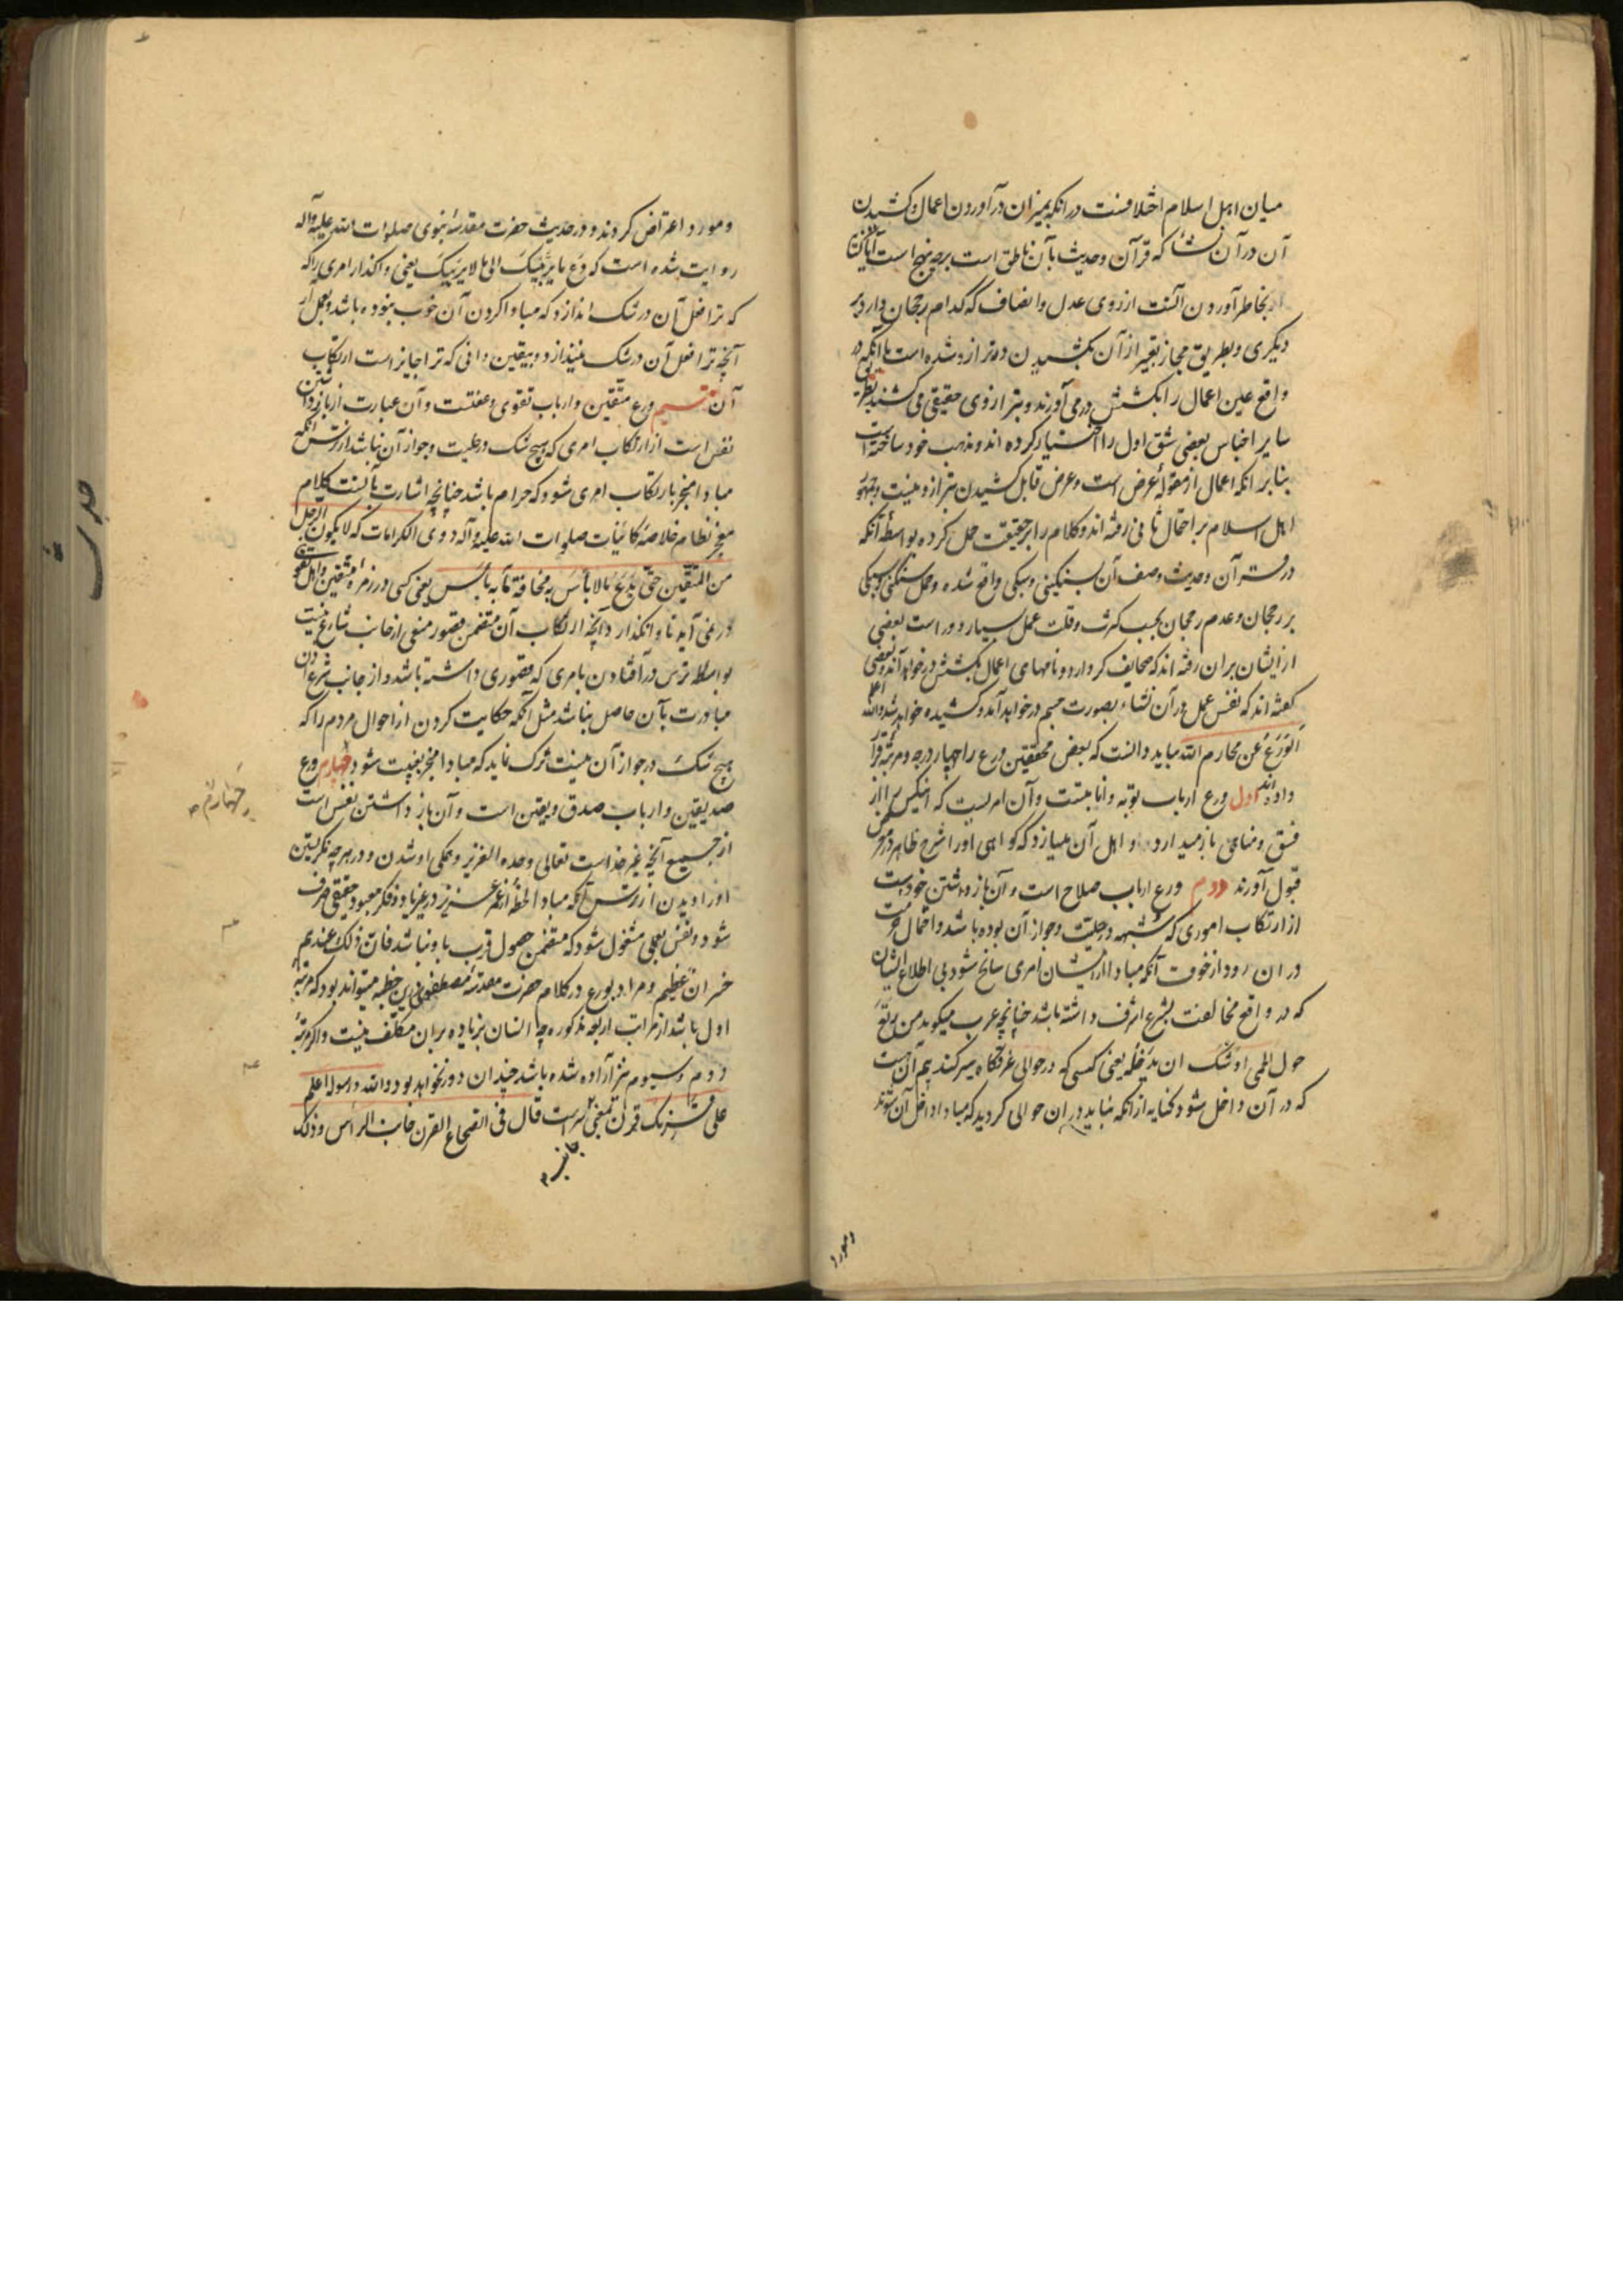 میان اهل اسلام اختلافست در انکه بمیزان در آوردن اعمال و کشیدن
آن در آن نشأ که قرآن و حدیث بآن ناطق است برچه نهج است آیا کنایه
بخاطر آوردن آنست از روی عدل و انصاف که کدام رجحان دارد بر
دیگری و بطریق مجاز تعبیر از آن بکشیدن در ترازو شده است یا آنکه در
واقع عین اعمال را بکشش در می آورند و بترازوی حقیقی می کشند بطریق
سایر اجناس بعضی شق اول را اختیار کرده اند و مذهب خود ساخته است
بنابر انکه اعمال از مقولهٔ عرض است و عرض قابل کشیدن بترازو نیست و جمهور
اهل اسلام بر احتمال ثانی رفته اند و کلام را بر حقیقت حمل کرده بواسطه آنکه
در قرآن و حدیث وصف آن بسنگینی و سبکی واقع شده و حمل سنگینی و سبکی
بر رجحان و عدم رجحان بحسب کثرت و قلت عمل بسیار دور است بعضی
از ایشان بران رفته اند که صحایف کردار و نامهای اعمال بکشش در خواهد آمد و بعضی
گفته اند که نفس عمل در آن نشاء بصورت جسم در خواهد آمد و کشیده خواهد شد والله اعلم
الورع عن محارم الله بباید دانست که بعض محققین ورع را چهار درجه و مرتبه قرار
داده اند اول ورع ارباب توبه و انابتست و آن امریست که انکس را از
فسق و مناهی باز میدارد و اهل آن میسازد که گواهی او را شرع ظاهر در معرض
قبول آورند دوم ورع ارباب صلاح است و آن باز داشتن خود است
از ارتکاب اموری که شبهه در حلیت و جواز آن بوده باشد و احتمال حرمت
در ان رود از خوف آنکه مبادا از ایشان امری سانح شود بی اطلاع ایشان
که در واقع مخالفت بشرع اشرف داشته باشد چنانچه عرب میکوید من یرتع
حول الحمی اوشک ان یدخله یعنی کسی که در حوالی غرقگاه سیر کند بیم آن هست
که در آن داخل شود و کنایه از انکه نباید در ان حوالی گردید که مبادا داخل آن شوند
و مورد
و مورد اعتراض گردند و در حدیث حضرت مقدسهٔ نبوی صلوات الله علیه و آله
روایت شده است که دع ما یریبک الی ما لا یریبک یعنی واگذار امری را که
که ترا فعل آن در شک اندازد که مبادا کردن آن خوب نبوده باشد و بعمل آر
آنچه ترا فعل آن در شک نیندازد و بیقین دانی که ترا جایز است ارتکاب
آن سیم ورع متقین و ارباب تقوی و عفتست و آن عبارت از باز داشتن
نفس است از ارتکاب امری که هیچ شک در حلیت و جواز آن نباشد از ترس انکه
مبادا منجر بارتکاب امری شود که حرام باشد چنانچه اشارت بآنست کلام
معجز نظام خلاصهٔ کائنات صلوات الله علیه و آله ذوی الکرامات که لا یکون الرجل
من المتقین حتی یدع ما لا بأس به مخافة ما به بأس یعنی کسی در زمره متقین و اهل تقوی
در نمی آید تا وانگذارد آنچه ارتکاب آن متضمن قصور و منعی از جانب شارع نیست
بواسطهٔ ترس در آفتادن بامری که قصوری داشته باشد و از جانب شرع اذن
مبادرت بآن حاصل نباشد مثل آنکه حکایت کردن از احوال مردم را که
هیچ شک در جواز آن نیست ترک نماید که مبادا منجر بغیبت شود چهارم ورع
صدیقین و ارباب صدق و یقین است و آن باز داشتن نفس است
از جمیع آنچه غیر خداست تعالی وحده العزیز و همگی او شدن و در هرچه نگریستن
او را دیدن از ترس آنکه مبادا لحظهٔ از عمر عزیز در غیر یاد و فکر معبود حقیقی صرف
شود و نفس بعملی مشغول شود که متضمن حصول قرب باو نباشد فان ذلک عندهم
خسران عظیم و مراد بورع در کلام حضرت مقدسهٔ مصطفوی درین خطبه میتواند بود که مرتبهٔ
اول باشد از مراتب اربعه مذکوره چه انسان بزیاده بران مکلف نیست و اگر مرتبهٔ
دوم و سیوم نیز آراده شده باشد چندان دور نخواهد بود والله و رسوله اعلم
علی قرنک قرن بمعنی سرست قال فی الصحاح القرن جانب الرأس و ذلک
چهارم